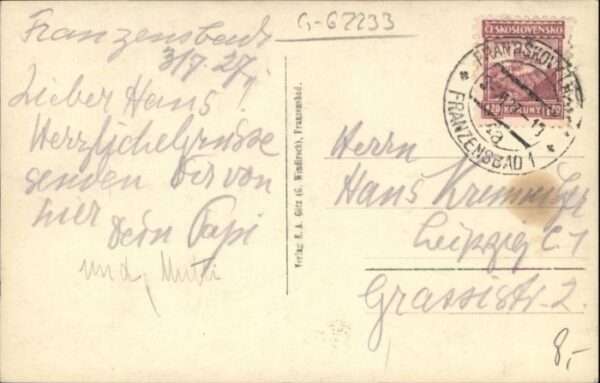 G-62233
Franzensbad
31/7.27.
Lieber Hans!
Herzliche Grüsse
senden Dir von
hier
Dein Papi
und Mutti
Verlag E. A. Götz (G. Windirsch), Franzensbad.
ČESKOSLOVENSKO
1'20 KORUNY 1'20
FRANTIŠKOVY LÁZNĚ 1
FRANZENSBAD 1
Herrn
Hans
Leipzig C. 1
Grassistr. 2.
8,-